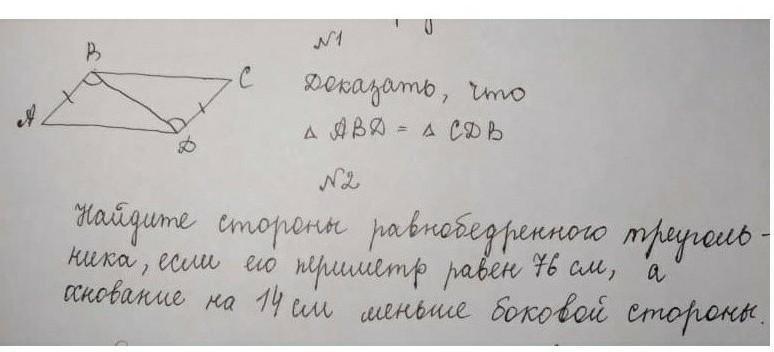 N1
B
C
Доказать, что
A
D
△ ABD = △ CDB
N2
Найдите стороны равнобедренного треуголь-
ника, если его периметр равен 76 см, а
основание на 14 см меньше боковой стороны.